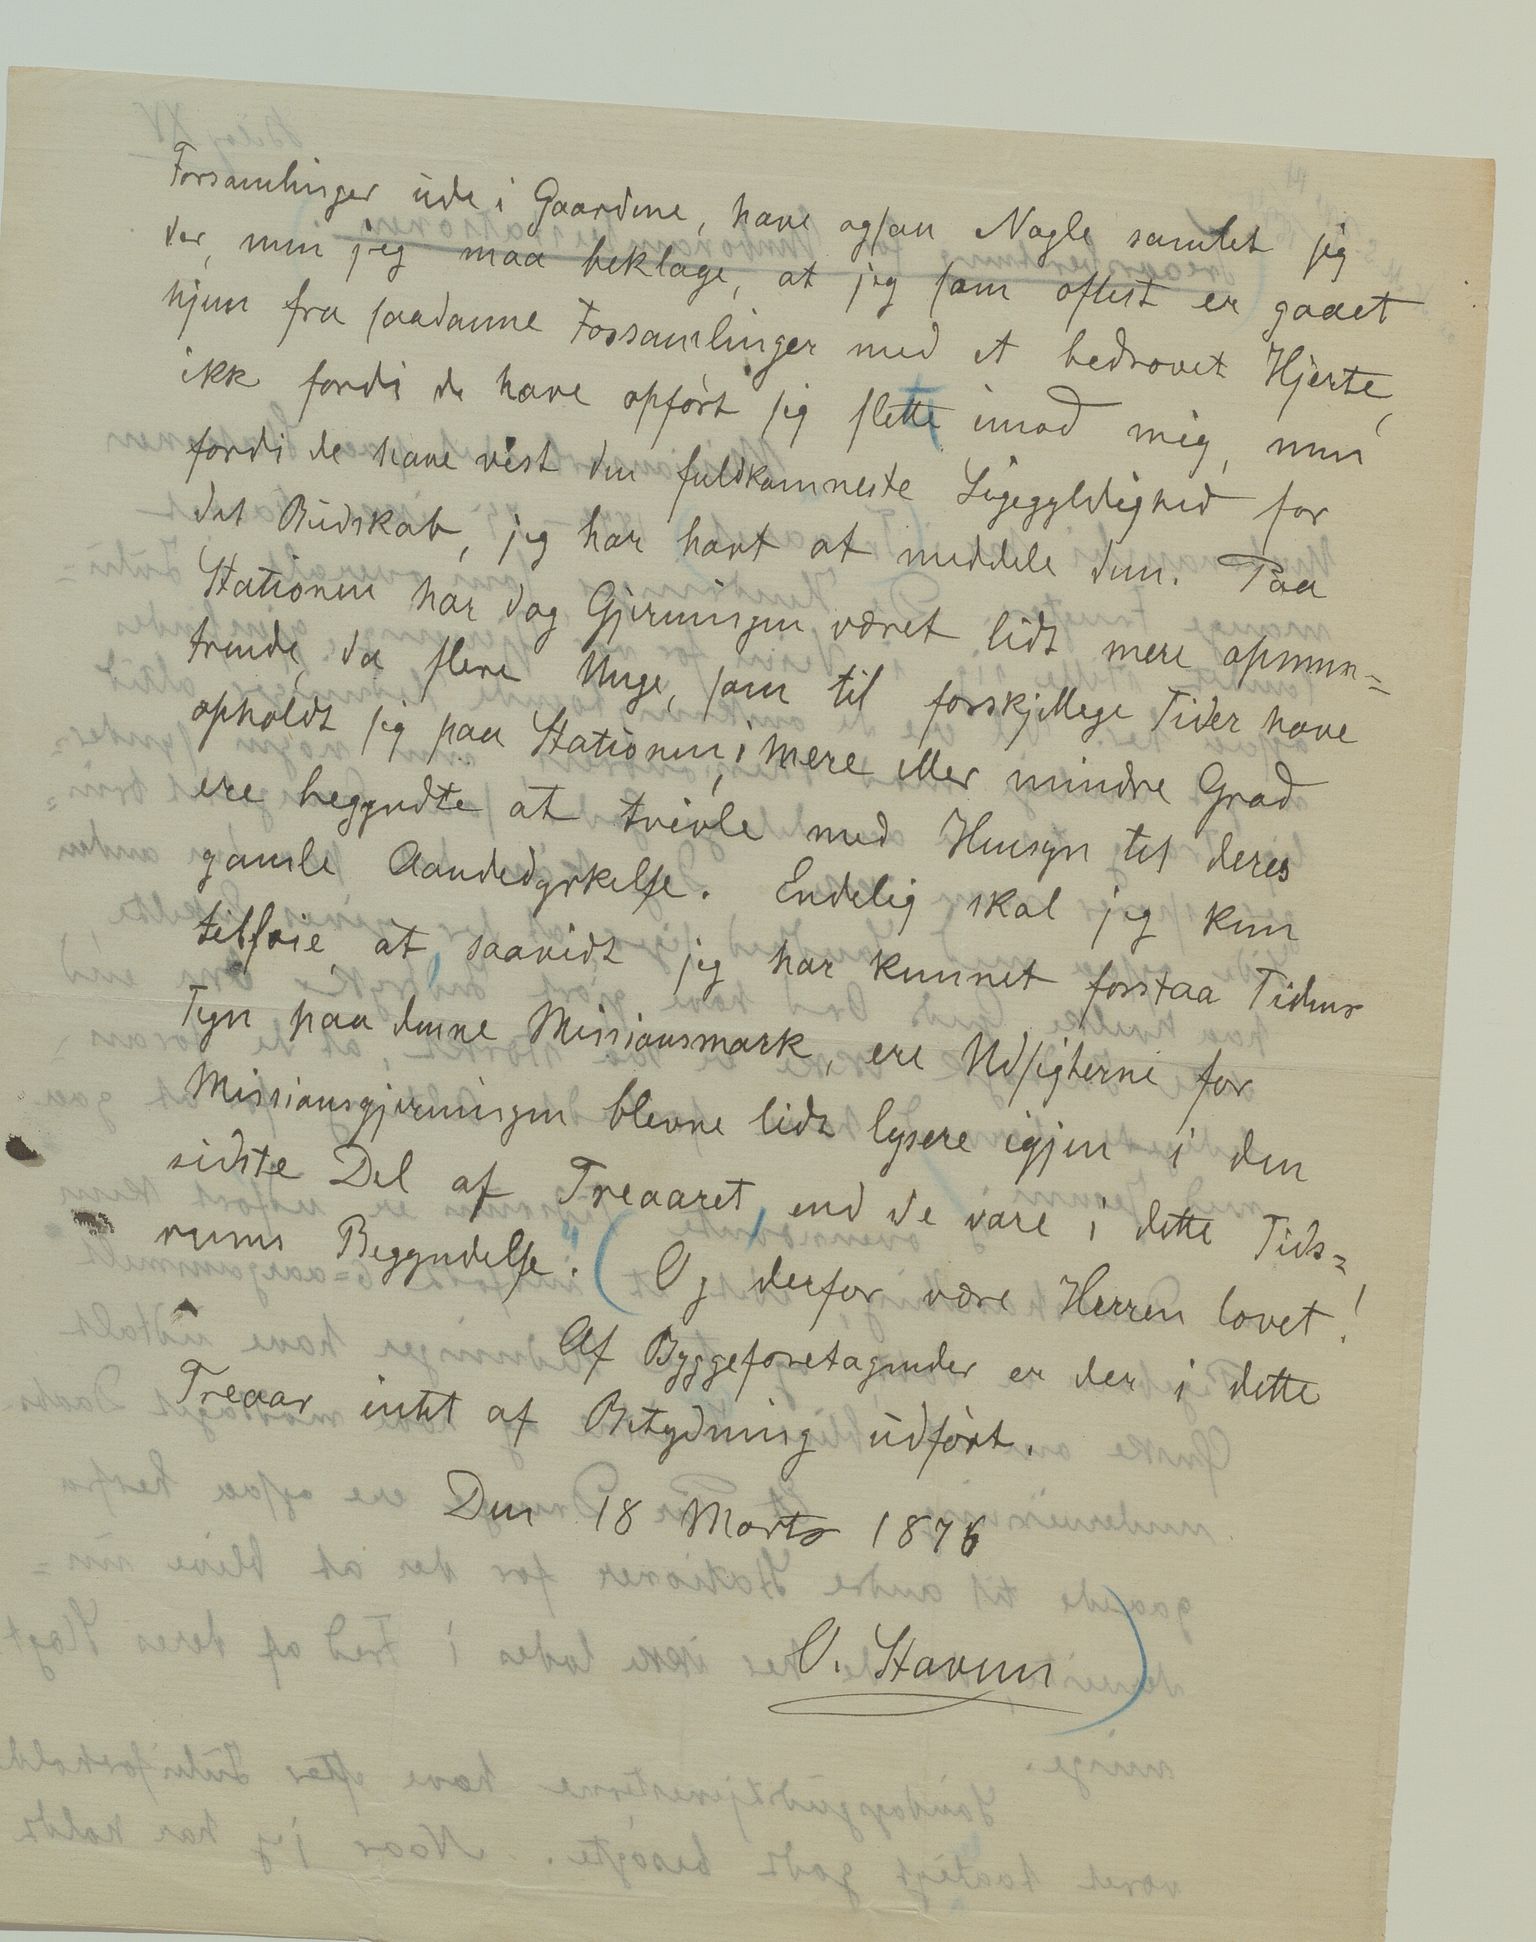 Forsamlinger ude i Gaardene, have ogsaa Nogle samlet sig
der, men jeg maa beklage, at jeg som oftest er gaaet
hjem fra saadanne Forsamlinger med et bedrøvet Hjerte,
ikke fordi de have opført sig slette imod mig, men
fordi de have vist den fuldkomneste Ligegyldighed for
det Budskab, jeg har havt at meddele dem. Paa
Stationen har dog Gjerningen været lidt mere opmun=
trende, da flere Unge, som til forskjellige Tider have
opholdt sig paa Stationen, i mere eller mindre Grad
ere begyndte at tvivle med Hensyn til deres
gamle Aandedyrkelse. Endelig skal jeg kun
tilføie at, saavidt jeg har kunnet forstaa Tidens
Tegn paa denne Missionsmark, ere Udsigterne for
Missionsgjerningen blevne lidt lysere igjen i den
sidste Del af Treaaret, end de vare i dette Tids=
rums Begyndelse. (Og derfor være Herren lovet!
Af Byggeforetagender er der i dette
Treaar intet af Betydning udført.
Den 18 Marts 1876
O. Stavem)